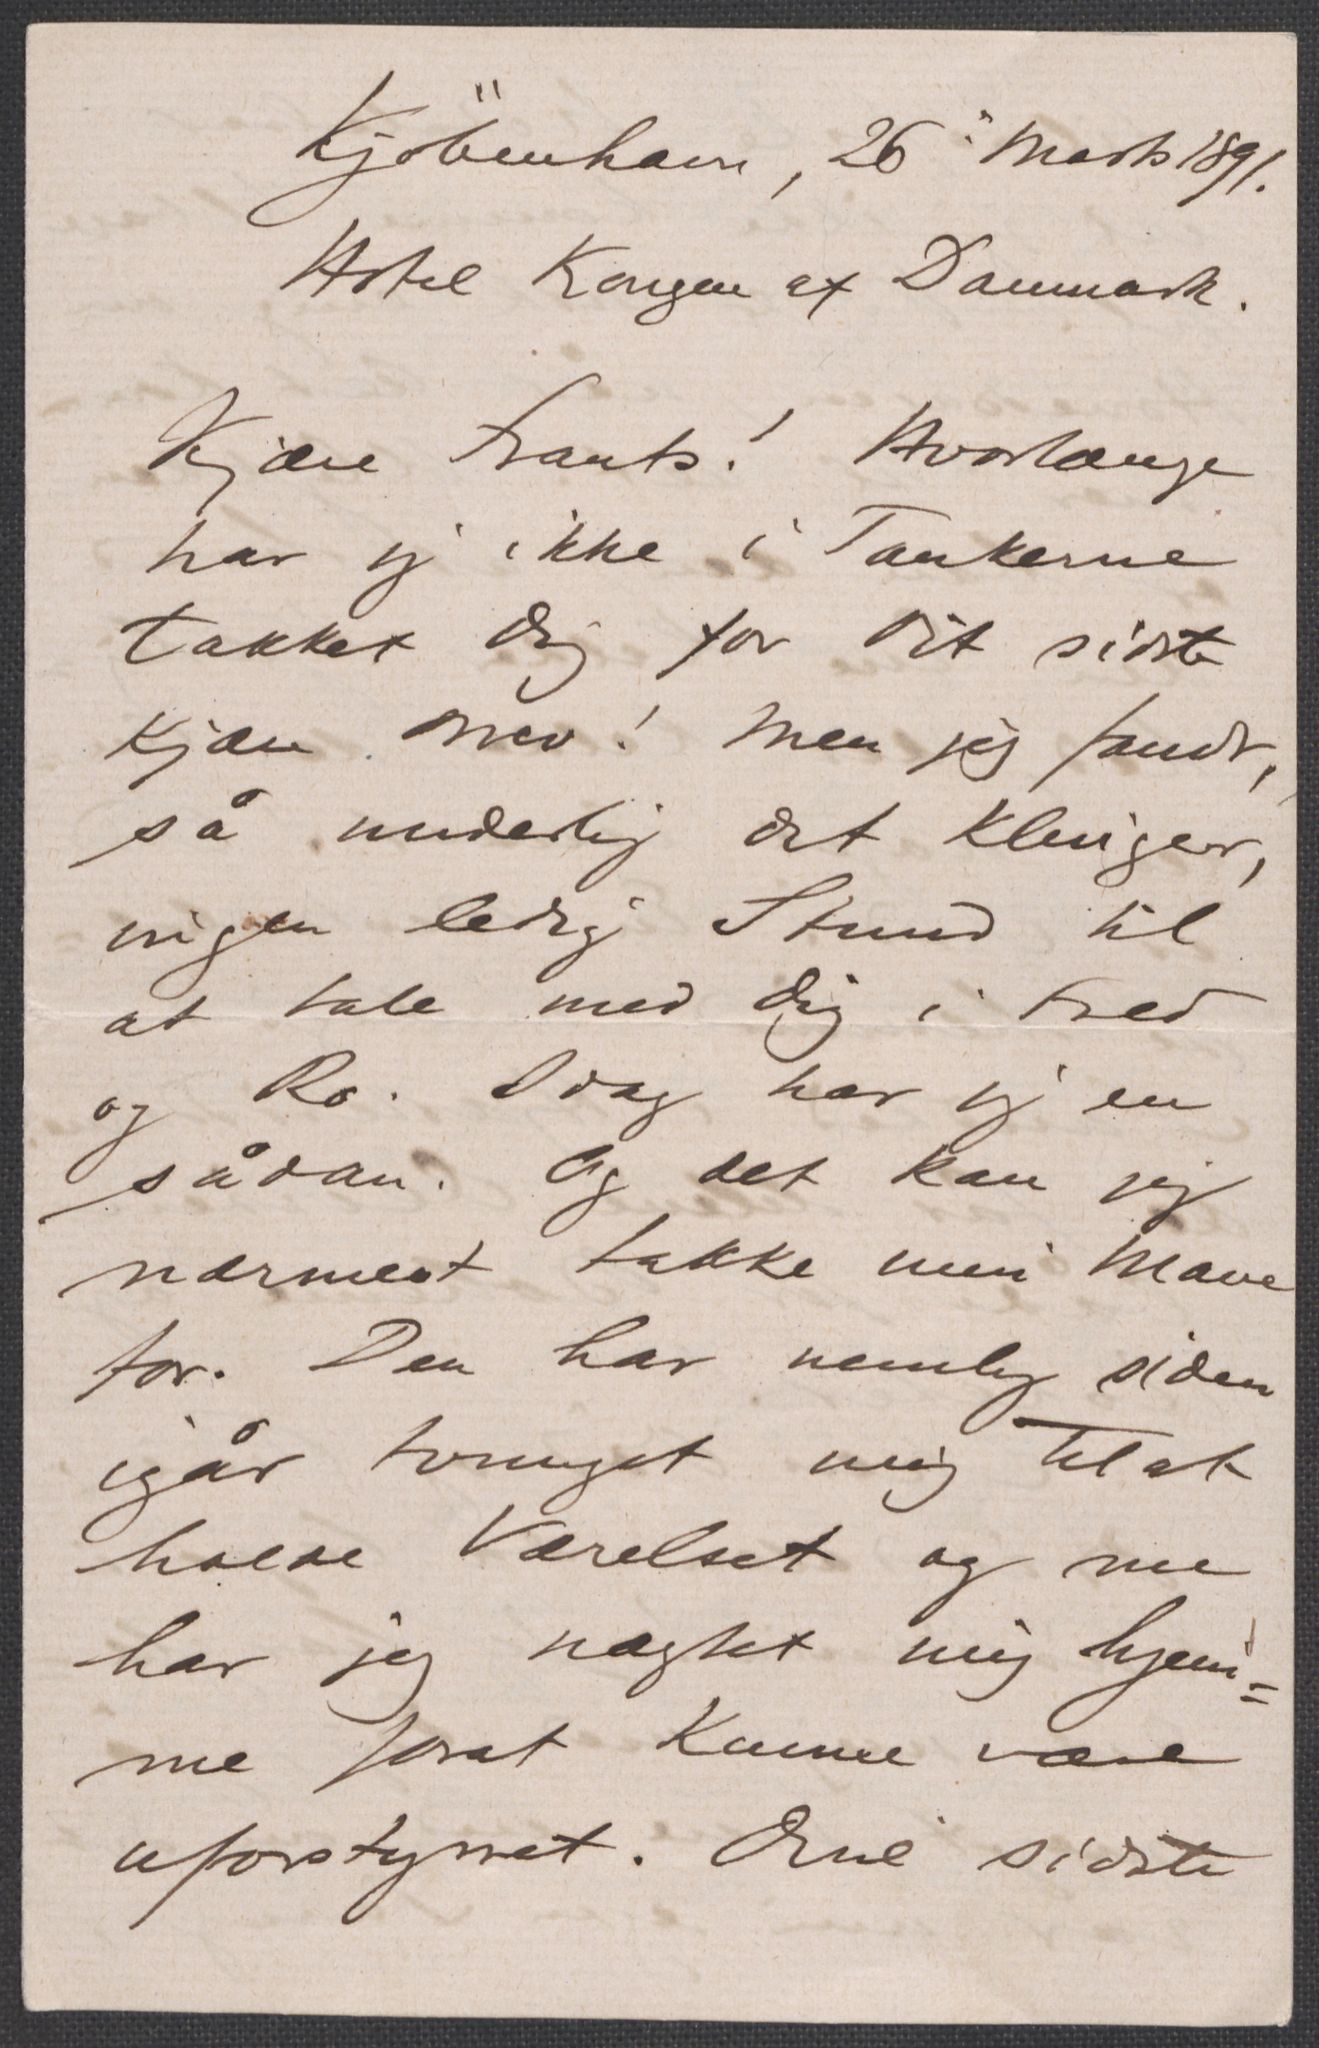 Kjöbenhavn, 26 Marts 1891.
Hotel Kongen af Danmark.
Kjære Frants! Hvorlænge
har jeg ikke i Tankerne
takket Dig for Dit sidste
kjære Brev! Men jeg fandt,
så underlig det klinger,
ingen ledig Stund til
at tale med Dig i Fred
og Ro. Idag har jeg en
sådan. Og det kan jeg
nærmest takke min Mave
for. Den har nemlig siden
igår tvunget mig til at
holde Værelset og nu
har jeg nægtet mig hjem=
me forat kunne være
uforstyrret. Disse sidste